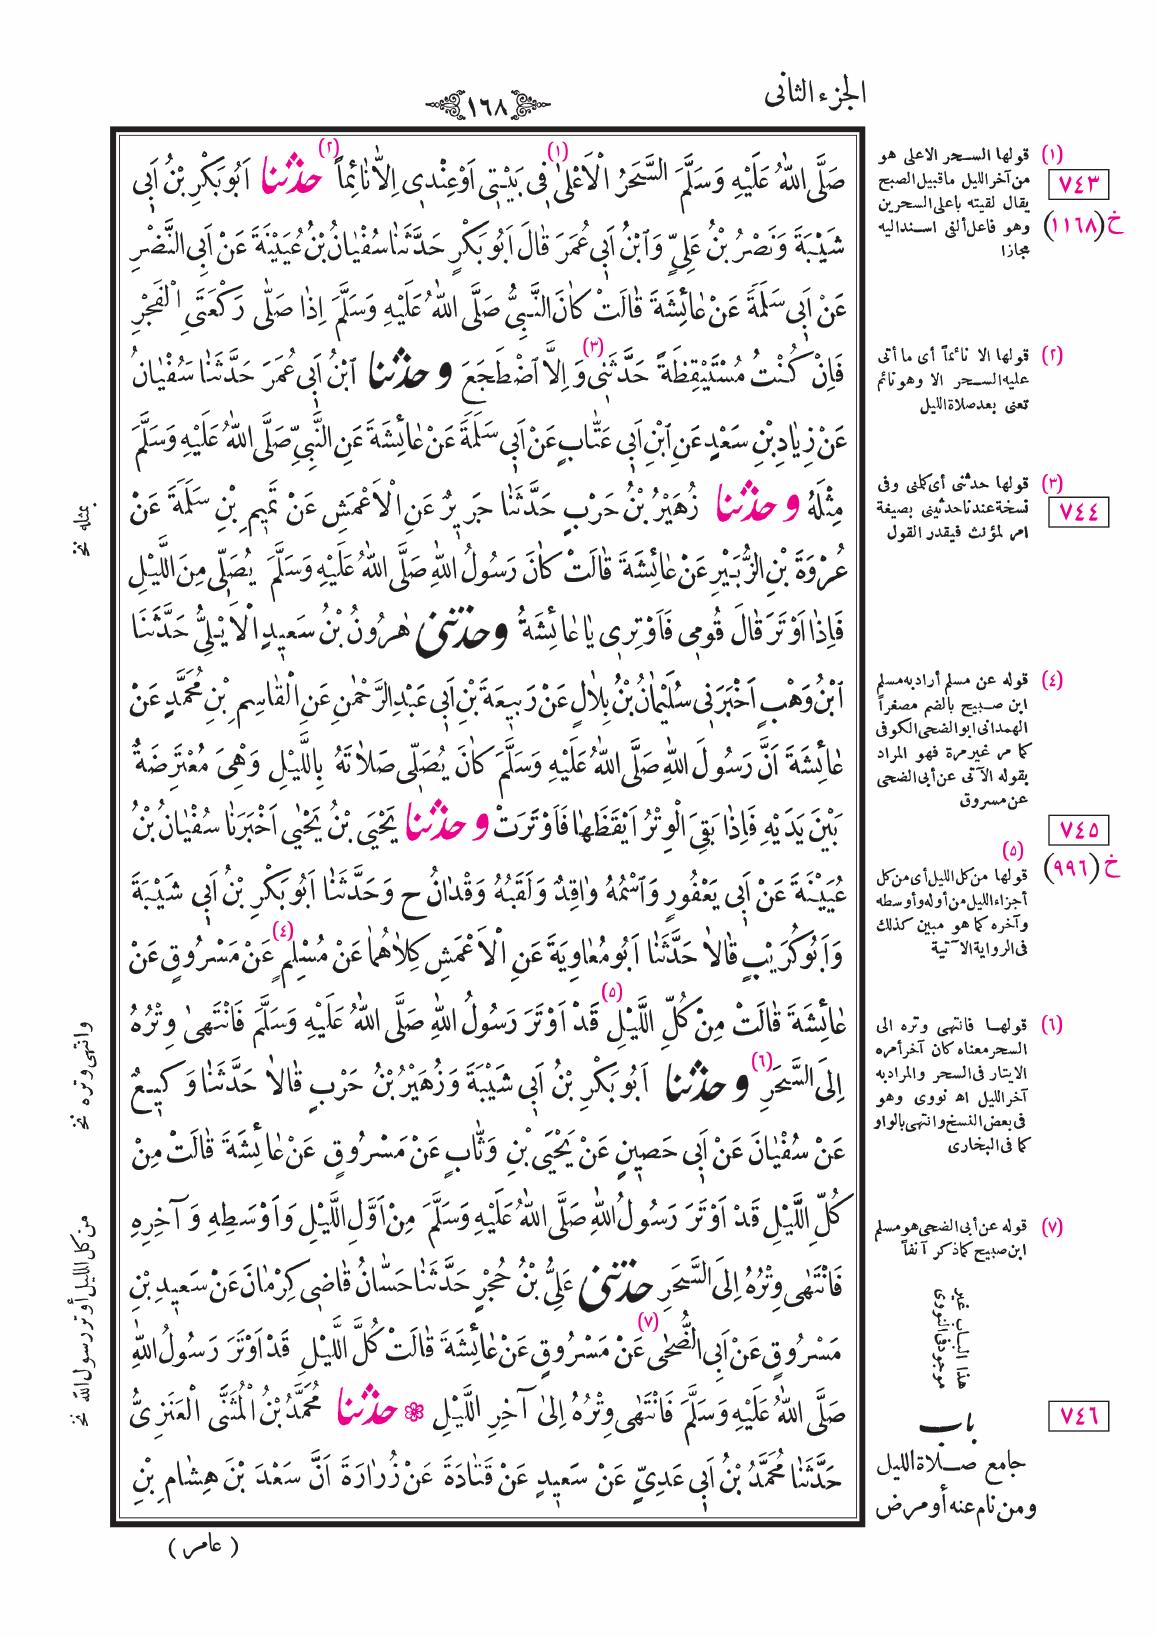 الجزء الثانى
١٦٨
صَلَّى اللهُ عَلَيْهِ وَسَلَّمَ السَّحَرُ الْاَعْلىٰ (١) فِى بَيْتِى اَوْعِنْدِى اِلاَّ نَائِماً (٢) حَدَّثَنَا اَبُوبَكْرِ بْنُ اَبِى
شَيْبَةَ وَنَصْرُ بْنُ عَلِيٍّ وَابْنُ اَبِى عُمَرَ قَالَ اَبُو بَكْرٍ حَدَّثَنَا سُفْيَانُ بْنُ عُيَيْنَةَ عَنْ اَبِى النَّضْرِ
عَنْ اَبِى سَلَمَةَ عَنْ عَائِشَةَ قَالَتْ كَانَ النَّبِيُّ صَلَّى اللهُ عَلَيْهِ وَسَلَّمَ اِذَا صَلّٰى رَكْعَتَيِ الْفَجْرِ
فَاِنْ كُنْتُ مُسْتَيْقِظَةً حَدَّثَنِى (٣) وَ اِلاَّ اضْطَجَعَ و حَدَّثَنَا ابْنُ اَبِى عُمَرَ حَدَّثَنَا سُفْيَانُ
عَنْ زِيَادِ بْنِ سَعْدٍ عَنِ ابْنِ اَبِى عَتَّابٍ عَنْ اَبِى سَلَمَةَ عَنْ عَائِشَةَ عَنِ النَّبِيِّ صَلَّى اللهُ عَلَيْهِ وَسَلَّمَ
مِثْلَهُ و حَدَّثَنَا زُهَيْرُ بْنُ حَرْبٍ حَدَّثَنَا جَرِيرٌ عَنِ الْاَعْمَشِ عَنْ تَمِيمِ بْنِ سَلَمَةَ عَنْ
عُرْوَةَ بْنِ الزُّبَيْرِ عَنْ عَائِشَةَ قَالَتْ كَانَ رَسُولُ اللهِ صَلَّى اللهُ عَلَيْهِ وَسَلَّمَ يُصَلِّى مِنَ اللَّيْلِ
فَاِذَا اَوْتَرَ قَالَ قُومِى فَاَوْتِرِى يَا عَائِشَةُ وحَدَّثَنِى هٰرُونُ بْنُ سَعِيدٍ الْاَيْلِيُّ حَدَّثَنَا
ابْنُ وَهْبٍ اَخْبَرَنِى سُلَيْمَانُ بْنُ بِلَالٍ عَنْ رَبِيعَةَ بْنِ اَبِى عَبْدِ الرَّحْمٰنِ عَنِ الْقَاسِمِ بْنِ مُحَمَّدٍ عَنْ
عَائِشَةَ اَنَّ رَسُولَ اللهِ صَلَّى اللهُ عَلَيْهِ وَسَلَّمَ كَانَ يُصَلِّى صَلَاتَهُ بِاللَّيْلِ وَهْىَ مُعْتَرِضَةٌ
بَيْنَ يَدَيْهِ فَاِذَا بَقِىَ الْوِتْرُ اَيْقَظَهَا فَاَوْتَرَتْ و حَدَّثَنَا يَحْيَى بْنُ يَحْيٰى اَخْبَرَنَا سُفْيَانُ بْنُ
عُيَيْنَةَ عَنْ اَبِى يَعْفُورٍ وَاسْمُهُ وَاقِدٌ وَلَقَبُهُ وَقْدَانُ ح وَحَدَّثَنَا اَبُو بَكْرِ بْنُ اَبِى شَيْبَةَ
وَاَبُو كُرَيْبٍ قَالاَ حَدَّثَنَا اَبُو مُعَاوِيَةَ عَنِ الْاَعْمَشِ كِلَاهُمَا عَنْ مُسْلِمٍ (٤) عَنْ مَسْرُوقٍ عَنْ
عَائِشَةَ قَالَتْ مِنْ كُلِّ اللَّيْلِ (٥) قَدْ اَوْتَرَ رَسُولُ اللهِ صَلَّى اللهُ عَلَيْهِ وَسَلَّمَ فَانْتَهىٰ وِتْرُهُ
اِلَى السَّحَرِ (٦) و حَدَّثَنَا اَبُو بَكْرِ بْنُ اَبِى شَيْبَةَ وَزُهَيْرُ بْنُ حَرْبٍ قَالاَ حَدَّثَنَا وَكِيعٌ
عَنْ سُفْيَانَ عَنْ اَبِى حَصِينٍ عَنْ يَحْيَى بْنِ وَثَّابٍ عَنْ مَسْرُوقٍ عَنْ عَائِشَةَ قَالَتْ مِنْ
كُلِّ اللَّيْلِ قَدْ اَوْتَرَ رَسُولُ اللهِ صَلَّى اللهُ عَلَيْهِ وَسَلَّمَ مِنْ اَوَّلِ اللَّيْلِ وَاَوْسَطِهِ وَ آخِرِهِ
فَانْتَهٰى وِتْرُهُ اِلَى السَّحَرِ حَدَّثَنِى عَلِيُّ بْنُ حُجْرٍ حَدَّثَنَا حَسَّانُ قَاضِى كِرْمَانَ عَنْ سَعِيدِ بْنِ
مَسْرُوقٍ عَنْ اَبِى الضُّحٰى (٧) عَنْ مَسْرُوقٍ عَنْ عَائِشَةَ قَالَتْ كُلَّ اللَّيْلِ قَدْ اَوْتَرَ رَسُولُ اللهِ
صَلَّى اللهُ عَلَيْهِ وَسَلَّمَ فَانْتَهٰى وِتْرُهُ اِلىٰ آخِرِ اللَّيْلِ ۞ حَدَّثَنَا مُحَمَّدُ بْنُ الْمُثَنَّى الْعَنَزِىُّ
حَدَّثَنَا مُحَمَّدُ بْنُ اَبِى عَدِيٍّ عَنْ سَعِيدٍ عَنْ قَتَادَةَ عَنْ زُرَارَةَ اَنَّ سَعْدَ بْنَ هِشَامِ بْنِ
( عامر )
(١) قولها السحر الاعلى هو
من آخر الليل ماقبيل الصبح
يقال لقيته باعلى السحرين
وهو فاعل ألفى اسنداليه
مجازا
٧٤٣
خ (١١٦٨)
(٢) قولها الا نائماً أى ما أتى
عليه السحر الا وهو نائم
تعنى بعد صلاة الليل
(٣) قولها حدثنى أى كلمنى وفى
نسخة عندنا حدثينى بصيغة
امر لمؤنث فيقدر القول
٧٤٤
(٤) قوله عن مسلم أراد به مسلم
ابن صبيح بالضم مصغراً
الهمدانى ابو الضحى الكوفى
كما مر غير مرة فهو المراد
بقوله الآتى عن أبى الضحى
عن مسروق
٧٤٥
خ (٩٩٦)
(٥)
قولها من كل الليل أى من كل
أجزاء الليل من أوله وأوسطه
وآخره كما هو مبين كذلك
فى الرواية الآتية
(٦) قولها فانتهى وتره الى
السحر معناه كان آخر أمره
الايتار فى السحر والمراد به
آخر الليل اه نووى وهو
فى بعض النسخ وانتهى بالواو
كما فى البخارى
(٧) قوله عن أبى الضحى هو مسلم
ابن صبيح كما ذكر آنفاً
هذا الباب غير
موجود فى النووى
٧٤٦
باب
جامع صلاة الليل
ومن نام عنه أو مرض
بمثله نخ
وانتهى وتره نخ
من كل الليل أوتر رسول الله نخ